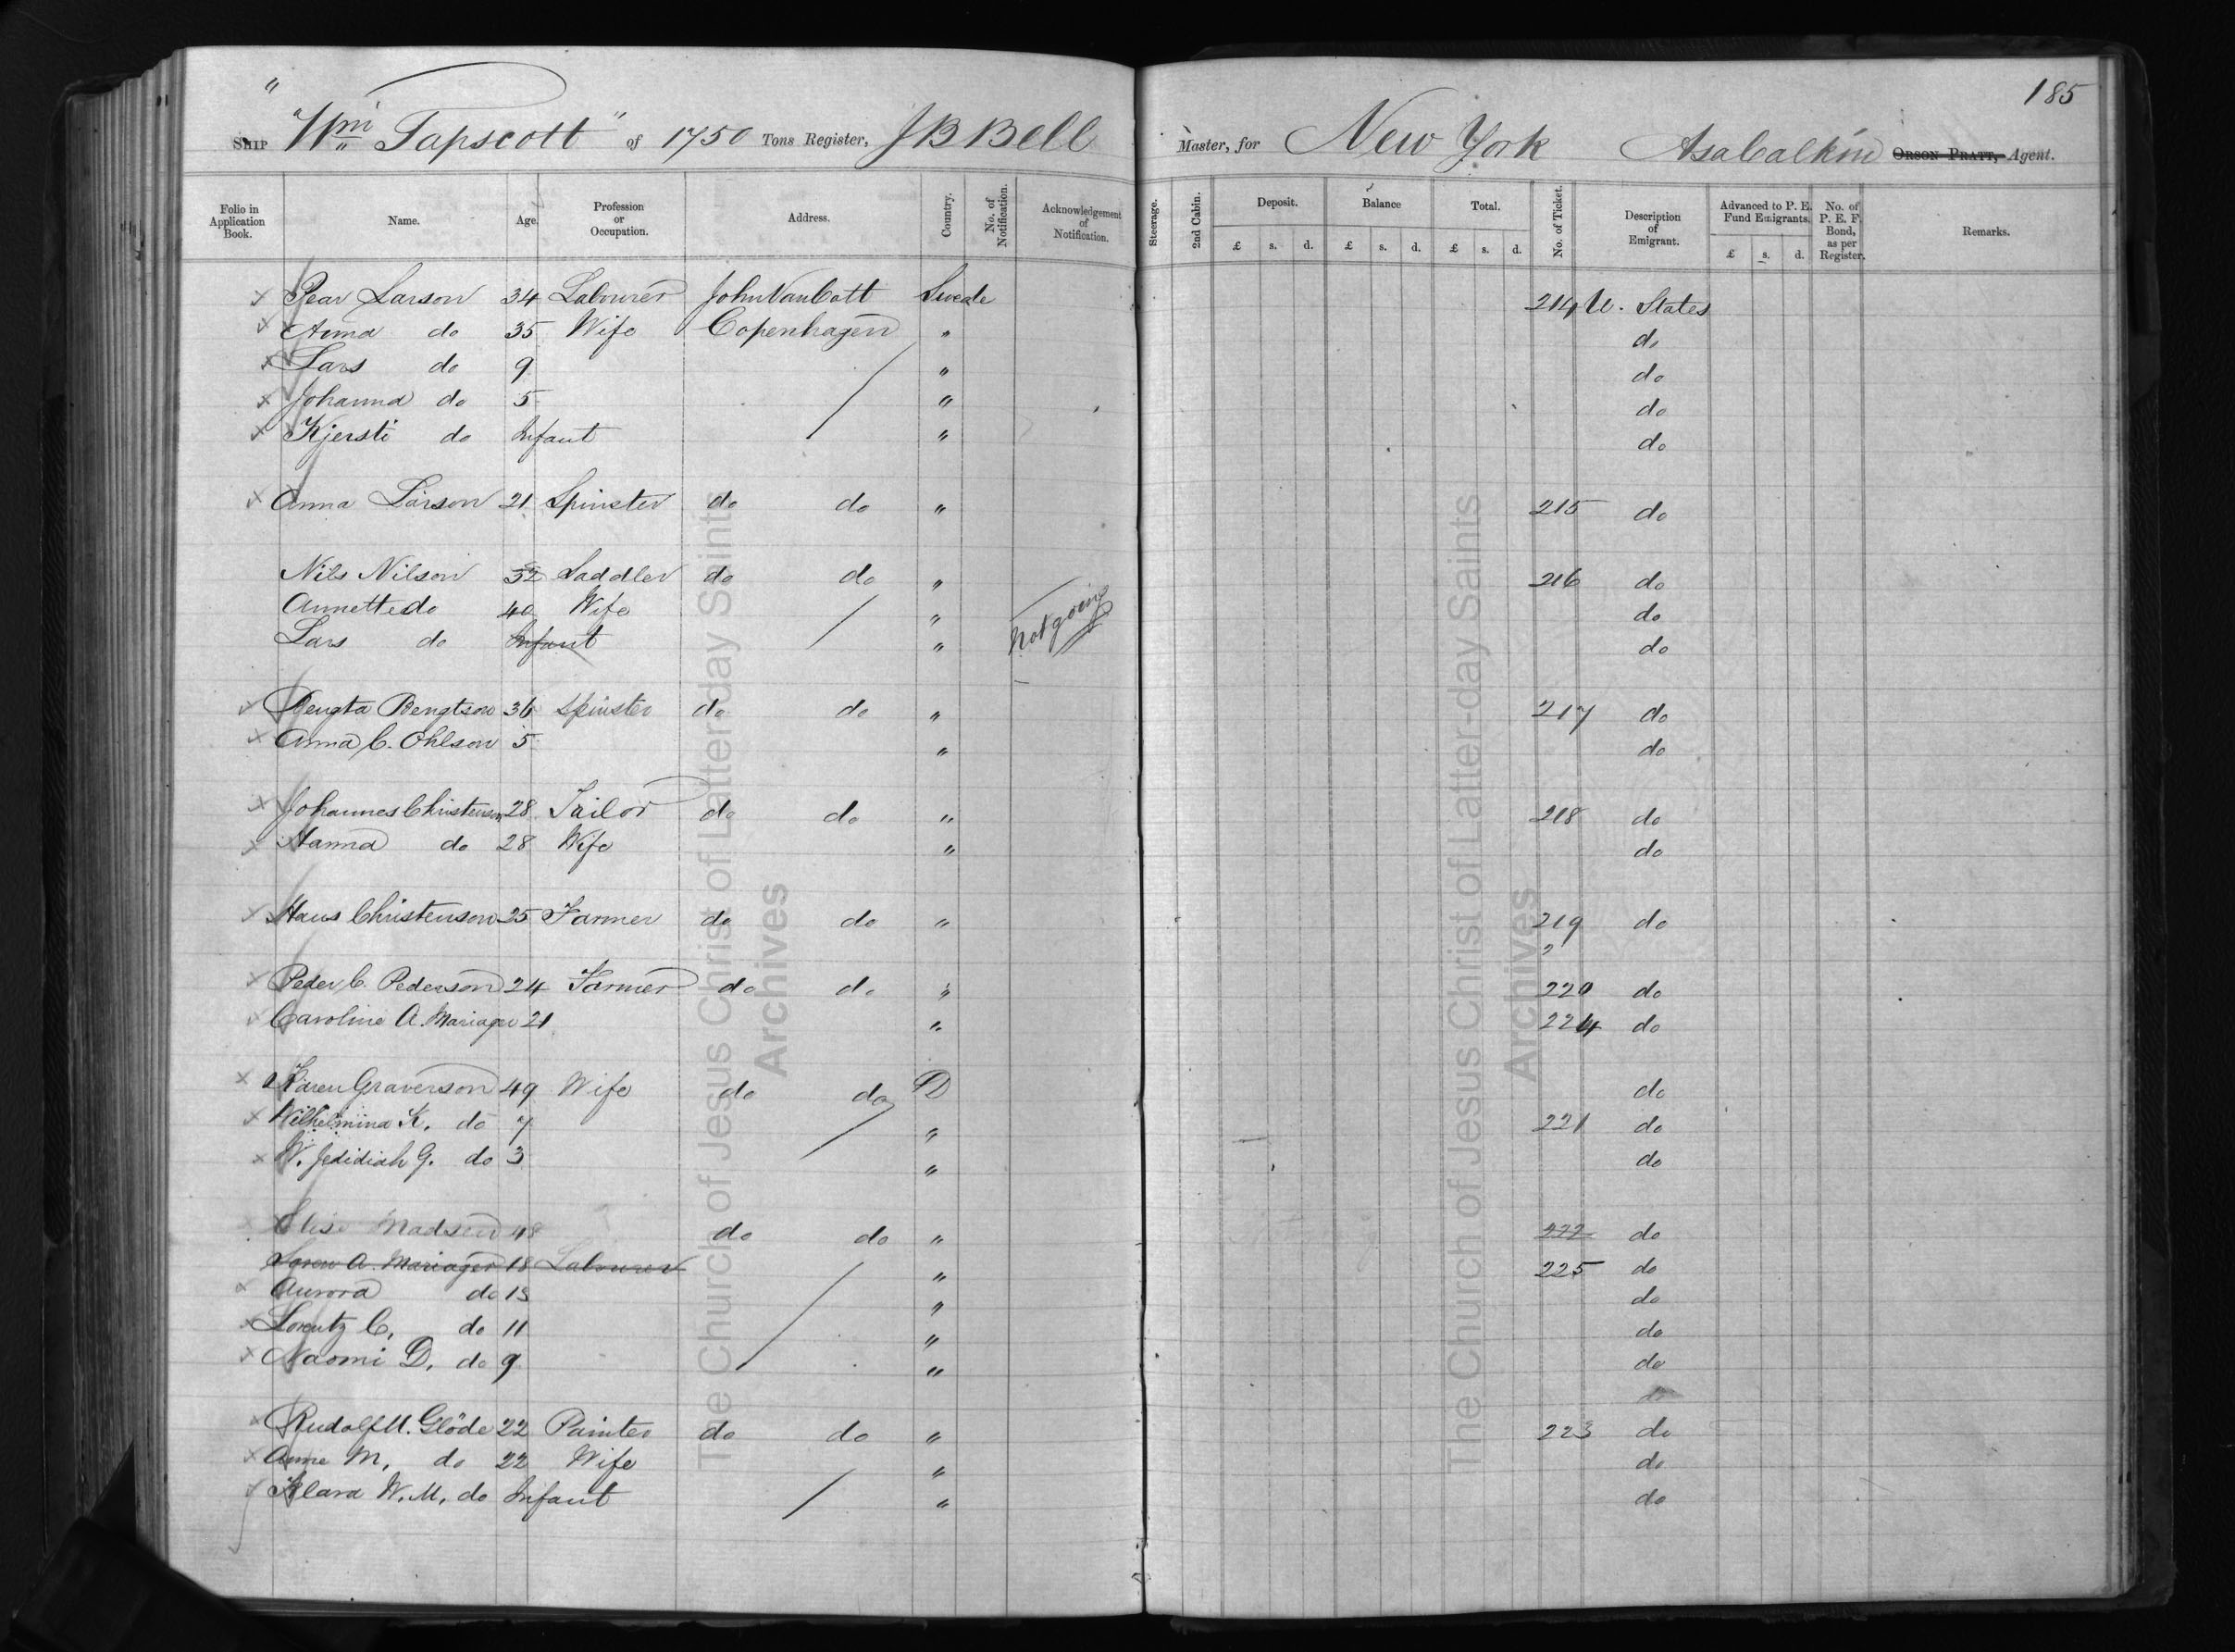 185
Ship "Wm Tapscott" of 1750 Tons Register, J B Bell Master, for New York Asa Calkin Orson Pratt, Agent.
Folio in Application Book. Name. Age. Profession or Occupation. Address. Country. No. of Notification. Acknowledgement of Notification. Steerage. 2nd Cabin. Deposit. Balance Total. No. of Ticket. Description of Emigrant. Advanced to P. E. Fund Emigrants. No. of P. E. F. Bond, as per Register. Remarks.
£ s. d. £ s. d. £ s. d. £ s. d.
Pear Larson 34 Labourer John VanCott Swede 214 U. States
Anna do 35 Wife Copenhagen " do
Lars do 9 " do
Johanna do 5 " do
Kjersti do Infant " do
Anna Larson 21 Spinster do do " 215 do
Nils Nilson 32 Saddler do do " 216 do
Annette do 40 Wife " do
Not going
Lars do Infant " do
Bengta Bengtson 36 Spinster do do " 217 do
Anna C. Ohlson 5 " do
Johannes Christenson 28 Tailor do do " 218 do
Hanna do 28 Wife " do
Hans Christenson 25 Farmer do do " 219 do
2
Peder C. Pederson 24 Farmer do do " 220 do
Caroline A. Mariager 21 " 224 do
Karen Graverson 49 Wife do do D do
Wilhelmina K. do 7 " 221 do
W. Jedidiah G. do 3 " do
Elise Madsen 48 do do " 222 do
Soren A. Mariager 18 Labourer " 225 do
Aurora do 15 " do
Lorentz C. do 11 " do
Naomi D. do 9 " do
do
Rudolf U. Glöde 22 Painter do do " 223 do
Anne M. do 22 Wife " do
Klara W. M. do Infant " do
The Church of Jesus Christ of Latter-day Saints
Archives
The Church of Jesus Christ of Latter-day Saints
Archives